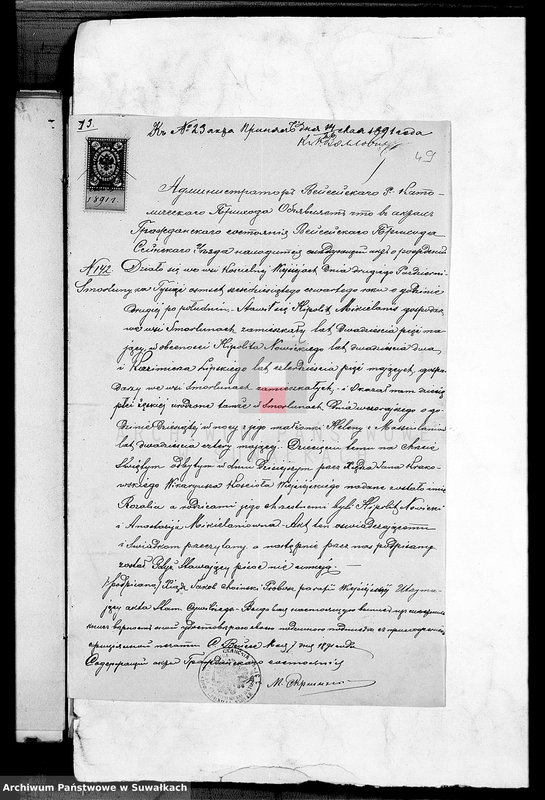 73.
Къ № 23 акта принятъ дня мая 1891 года
49
1891 г.
Администраторъ Вейсейскаго Р. Като-
лическаго Прихода Объявляетъ что въ актахъ
Гражданскаго состоянія Вейсейскаго Прихода
Сейнскаго Уѣзда находится слѣдующій актъ о рожденіи
№ 142. Działo się we wsi Kościelnej Wiejsiejach dnia drugiego Październi-
Smorluny ka Tysiąc osmset sześdziesiątego czwartego roku o godzinie
drugiej po południu. Stawił się Hipolit Mikielanis gospodarz
we wsi Smorlunach zamieszkały lat dwadzieścia pięć ma-
jący, w obecności Hipolita Nowickiego lat dwadzieścia dwa,
i Kazimierza Lipskiego lat czterdzieścia pięć mających, gospo-
darzy we wsi Smorlunach zamieszkałych, i okazał nam dziecię
płci żęskiej urodzone tamże w Smorlunach dnia wczorajszego o go-
dzinie dziesiątej w nocy z jego małżonki Heleny z
lat dwadzieścia cztery mającej. Dziecięciu temu na Chrzcie
Świętym odbytym w dniu dzisiejszym przez Księdza Jana Krako-
wskiego Wikaryusza Kościoła Wiejsiejskiego nadane zostało imie
Rozalia a rodzicami jego chrzestnemi byli: Hipolit Nowicki
i Anastazija Mikielaniowna. Akt ten oswiadczającemu
i Świadkom przeczytany, a następnie przez nas podpisany
został gdyż Stawający pisać nie umieją.
(podpisano) Ksiądz Jakob Choinski Proboszcz parafii Wiejsiejskiej Utrzymu-
jący akta Stanu Cywilnego.
книгъ вѣрность сего удостовѣряю своею подписью съ приложеніемъ
оффиціальной печати С. Вейсее Мая 7 дня 1891 года
Содержащій акты Гражданскаго состоянія
Кс. М.
Archiwum Państwowe w Suwałkach